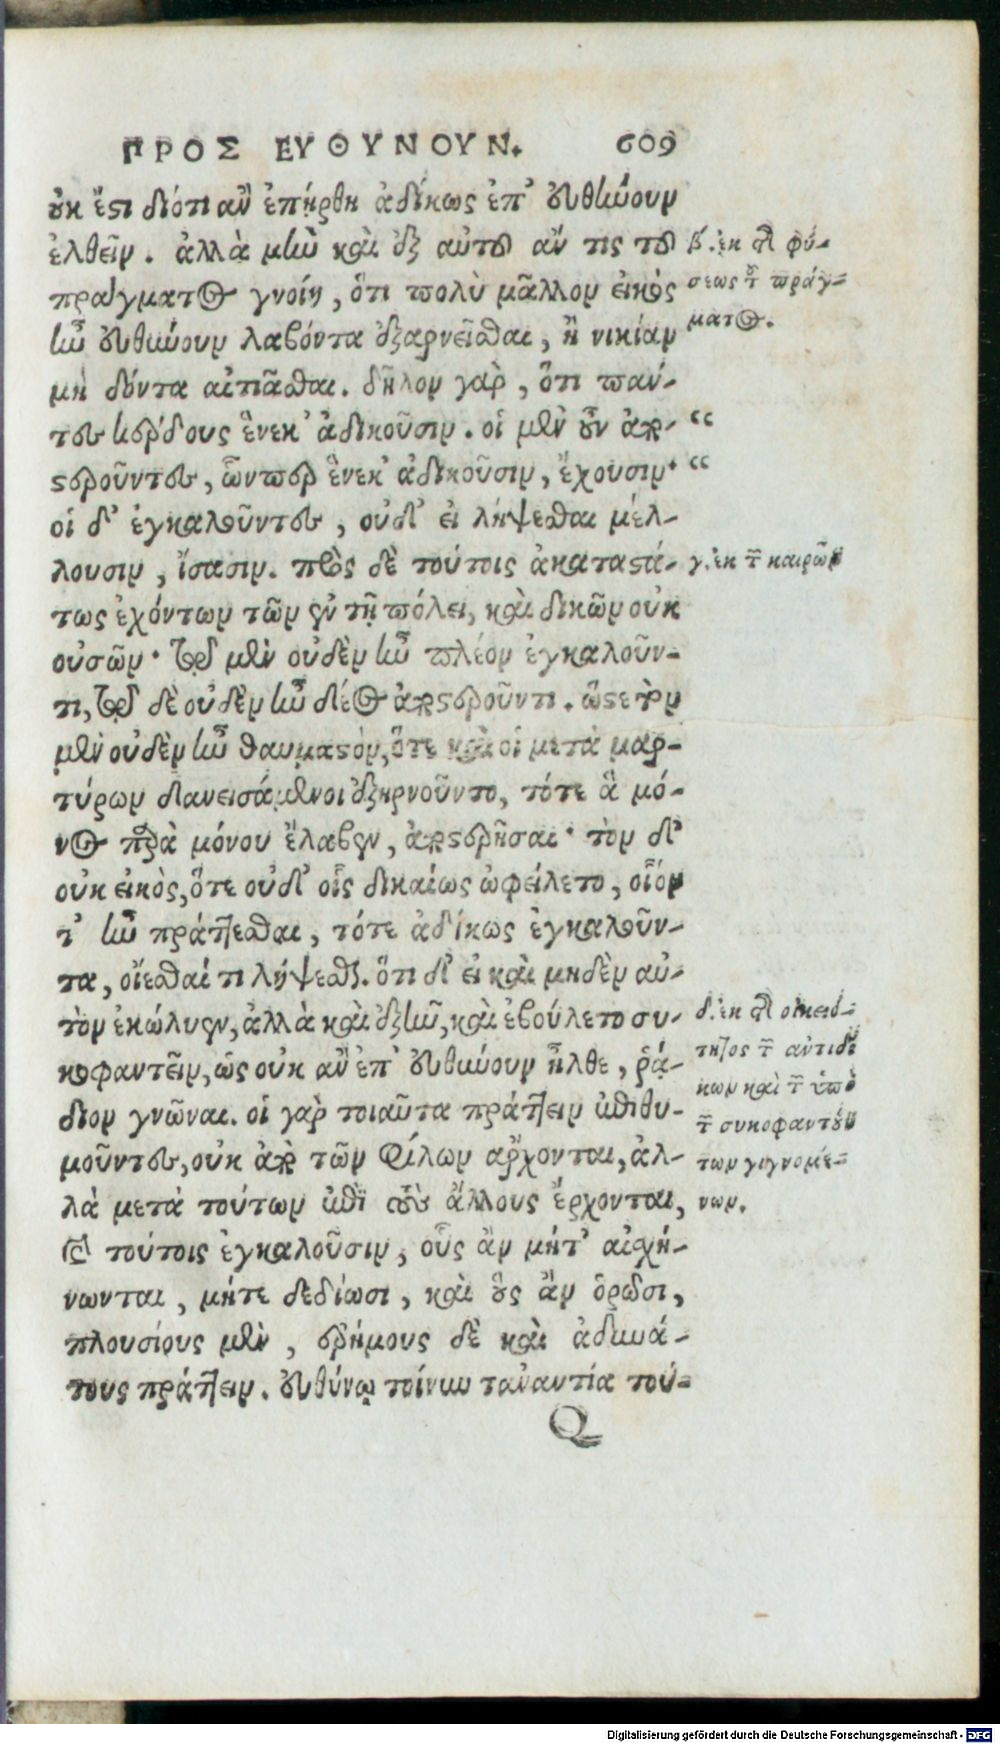 ΠΡΟΣ ΕΥΘΥΝΟΥΝ. 609
οὐκ ἔστι διότι ἂν ἐπήρθη ἀδίκως ἐπ' εὐθύνουν
ἐλθεῖν. ἀλλὰ μὴν καὶ ἐξ αὐτοῦ ἄν τις τοῦ
πράγματος γνοίη, ὅτι πολὺ μᾶλλον εἰκὸς
ἦν εὐθύνουν λαβόντα ἐξαρνεῖσθαι, ἢ νικίαν
μὴ δόντα αἰτιᾶσθαι. δῆλον γὰρ, ὅτι πάν-
τες κέρδους ἕνεκ' ἀδικοῦσιν. οἱ μὲν οὖν ἀπο-
στεροῦντες, ὧνπερ ἕνεκ' ἀδικοῦσιν, ἔχουσιν·
οἱ δ' ἐγκαλοῦντες, οὐδ' εἰ λήψεσθαι μέλ-
λουσιν, ἴσασιν. πρὸς δὲ τούτοις ἀκαταστά-
τως ἐχόντων τῶν ἐν τῇ πόλει, καὶ δικῶν οὐκ
οὐσῶν· τῷ μὲν οὐδὲν ἦν πλέον ἐγκαλοῦν-
τι, τῷ δὲ οὐδὲν ἦν δέος ἀποστεροῦντι. ὥστε τὸν
μὲν οὐδὲν ἦν θαυμαστὸν, ὅτε καὶ οἱ μετὰ μαρ-
τύρων δανεισάμενοι ἐξηρνοῦντο, τότε ἃ μό-
νος παρὰ μόνου ἔλαβεν, ἀποστερῆσαι· τὸν δ'
οὐκ εἰκὸς, ὅτε οὐδ' οἷς δικαίως ὠφείλετο, οἷόν
τ' ἦν πράττεσθαι, τότε ἀδίκως ἐγκαλοῦν-
τα, οἴεσθαί τι λήψεσθαι. ὅτι δ' εἰ καὶ μηδὲν αὐ-
τὸν ἐκώλυεν, ἀλλὰ καὶ ἐξῆν, καὶ ἐβούλετο συ-
κοφαντεῖν, ὡς οὐκ ἂν ἐπ' εὐθύνουν ἦλθε, ῥᾴ-
διον γνῶναι. οἱ γὰρ τοιαῦτα πράττειν ἐπιθυ-
μοῦντες, οὐκ ἀπὸ τῶν φίλων ἄρχονται, ἀλ-
λὰ μετὰ τούτων ἐπὶ τοὺς ἄλλους ἔρχονται,
καὶ τούτοις ἐγκαλοῦσιν, οὓς ἂν μήτ' αἰσχύ-
νωνται, μήτε δεδίωσι, καὶ οὓς ἂν ὁρῶσι,
πλουσίους μὲν, ἐρήμους δὲ καὶ ἀδυνά-
τους πράττειν. εὐθύνῳ τοίνυν τἀναντία τού-
Q
β. ἐκ τῆς φύ-
σεως τοῦ πράγ-
ματος.
“
“
γ. ἐκ τῶν καιρῶν
δ. ἐκ τῆς οἰκειό-
τητος τῶν ἀντιδί
κων καὶ τῶν ὑπὸ
τῶν συκοφαντούν
των γιγνομέ-
νων.
Digitalisierung gefördert durch die Deutsche Forschungsgemeinschaft - DFG